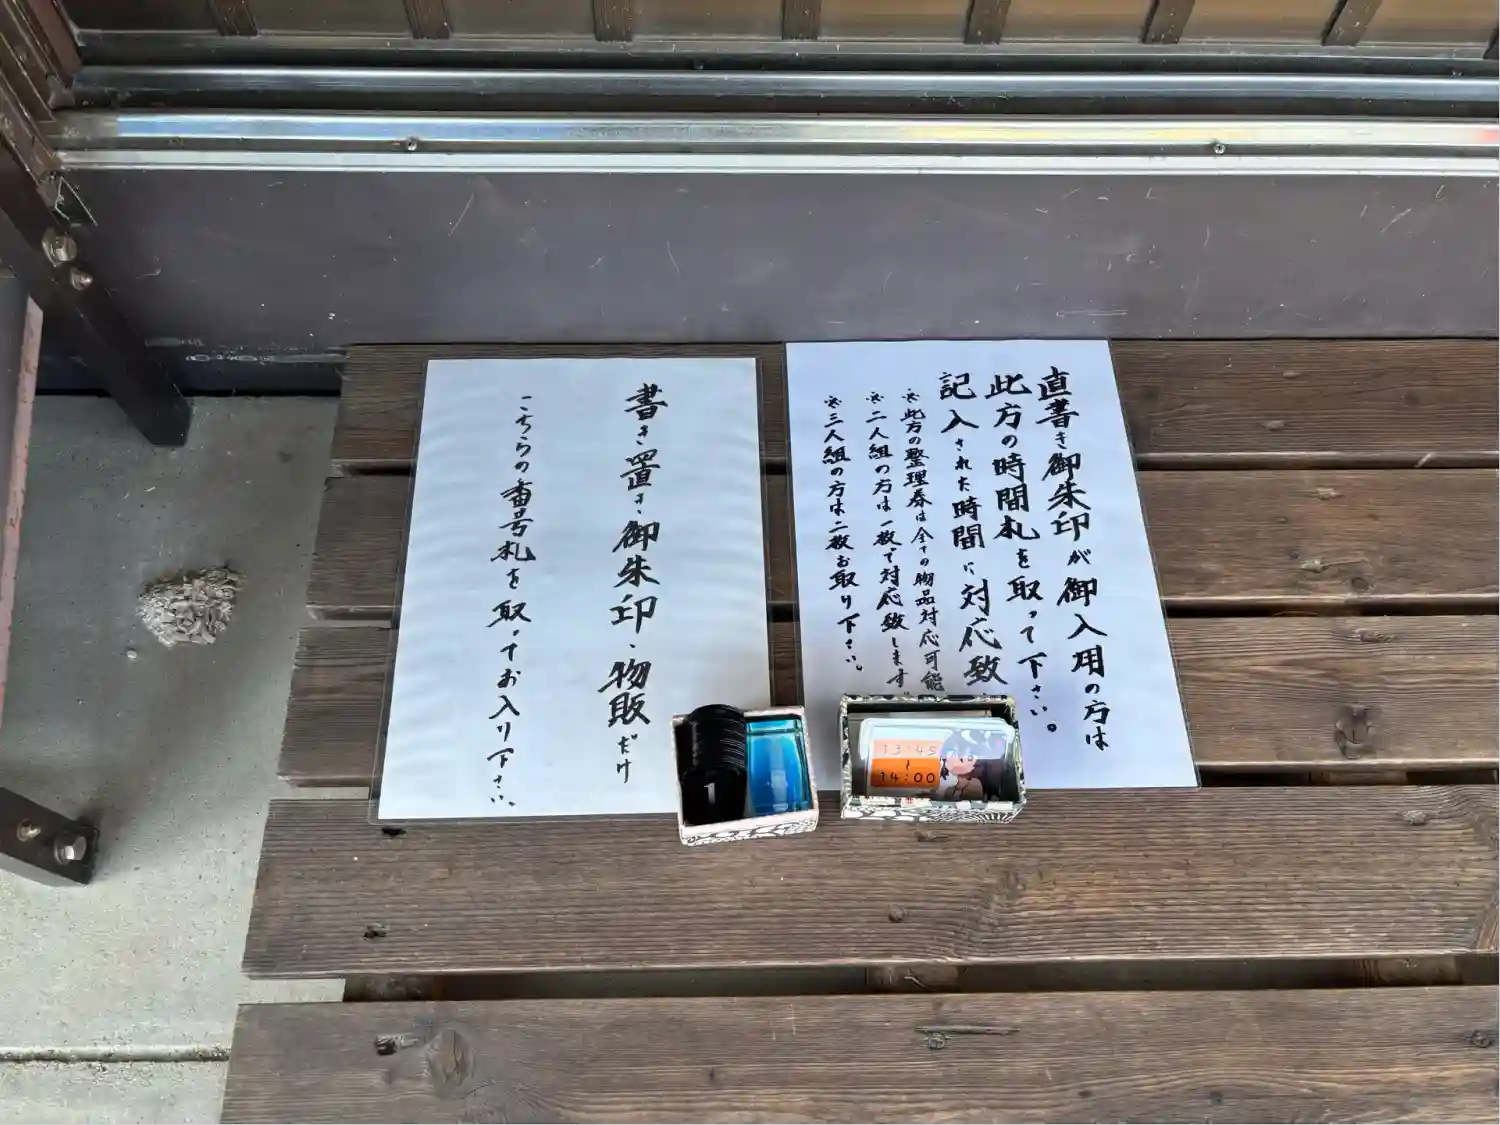 直書き御朱印が御入用の方は
此方の時間札を取って下さい。
記入された時間に対応致
※此方の整理券は全ての物品対応可能
※二人組の方は一枚で対応致します
※三人組の方は二枚お取り下さい。
書き置き御朱印、物販だけ
こちらの番号札を取ってお入り下さい。
1
13:45
～
14:00